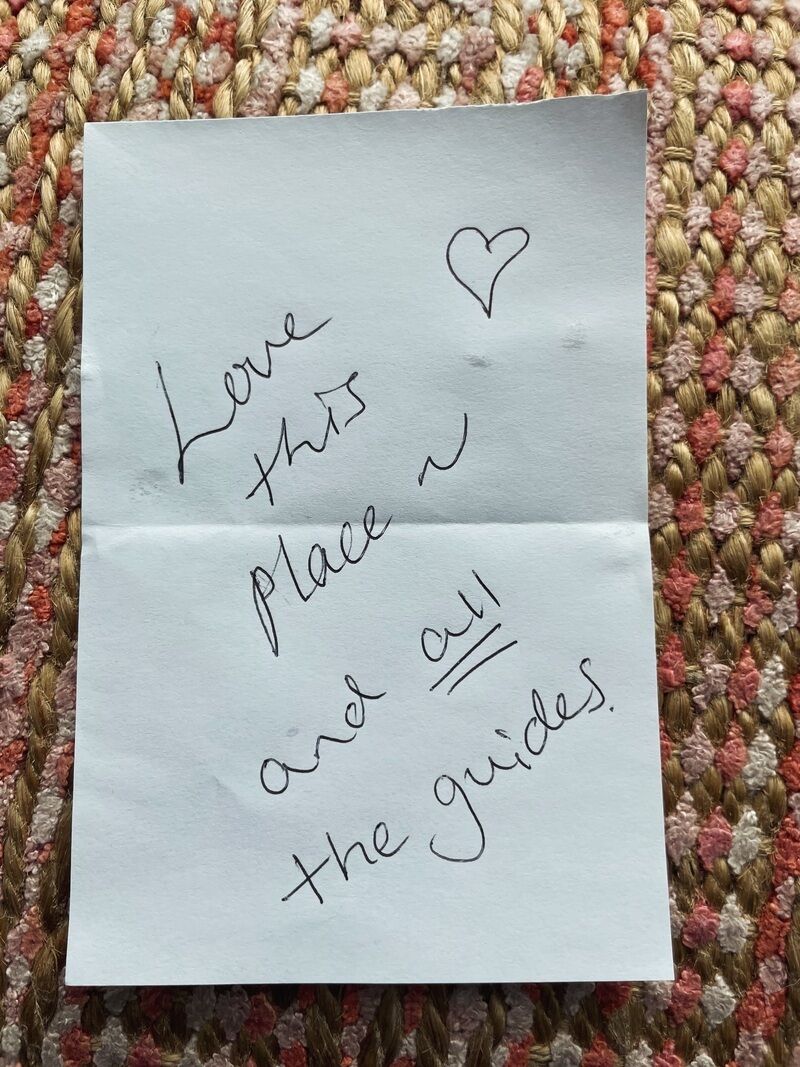 Love
this
place ~
and all
the guides.